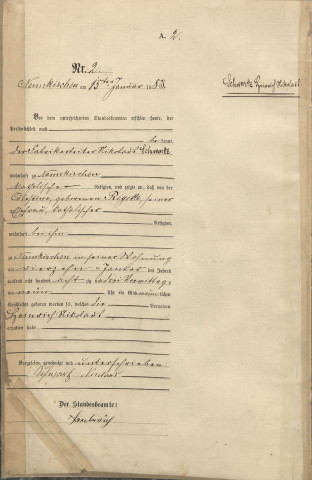 A. 2.
Nr. 2.
Schwartz Heinrich Nikolaus
Neunkirchen am 15ten Januar 1883.
Vor dem unterzeichneten Standesbeamten erschien heute, der
Persönlichkeit nach
be kannt,
der Fabrikarbeiter Nikolaus Schwartz
wohnhaft zu Neunkirchen
katholischer Religion, und zeigte an, daß von der
geborenen seiner
Ehefrau, katholischer
Religion,
wohnhaft bei ihm
zu Neunkirchen in seiner Wohnung
am vierzehn ten Januar des Jahres
tausend acht hundert acht zig drei Vormittags
um neun Uhr ein Kind männlichen
Geschlechts geboren worden sei, welches die Vornamen
Heinrich Nikolaus
erhalten habe
Vorgelesen, genehmigt und unterschrieben
Schwartz Nicolas
Der Standesbeamte: